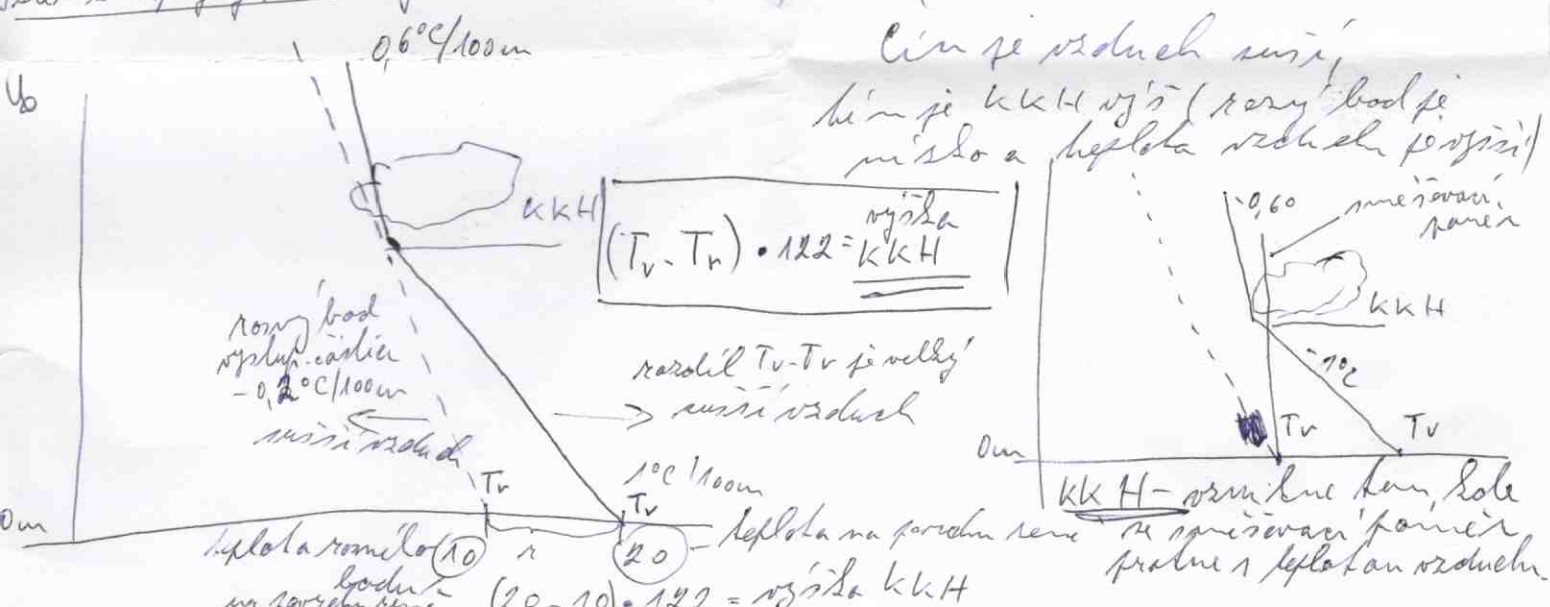 0,6°C/100m
Čím je vzduch sušší,
tím je KKH výš (rosný bod je
nízko a teplota vzduchu je vyšší)
KKH
(Tv - Tr) • 122 = výška KKH
-0,60
směšovací
poměr
KKH
-1°C
rosný bod
výstup. částice
-0,2°C/100m
sušší vzduch
rozdíl Tv-Tr je velký
sušší vzduch
1°C/100m
Tr
Tv
0m
teplota rosného
bodu
10
r
20
teplota na povrchu země
(20-10) • 122 = výška KKH
Tv
Tv
0m
KKH - vznikne tam, kde
se směšovací poměr
protne s teplotou vzduchu.